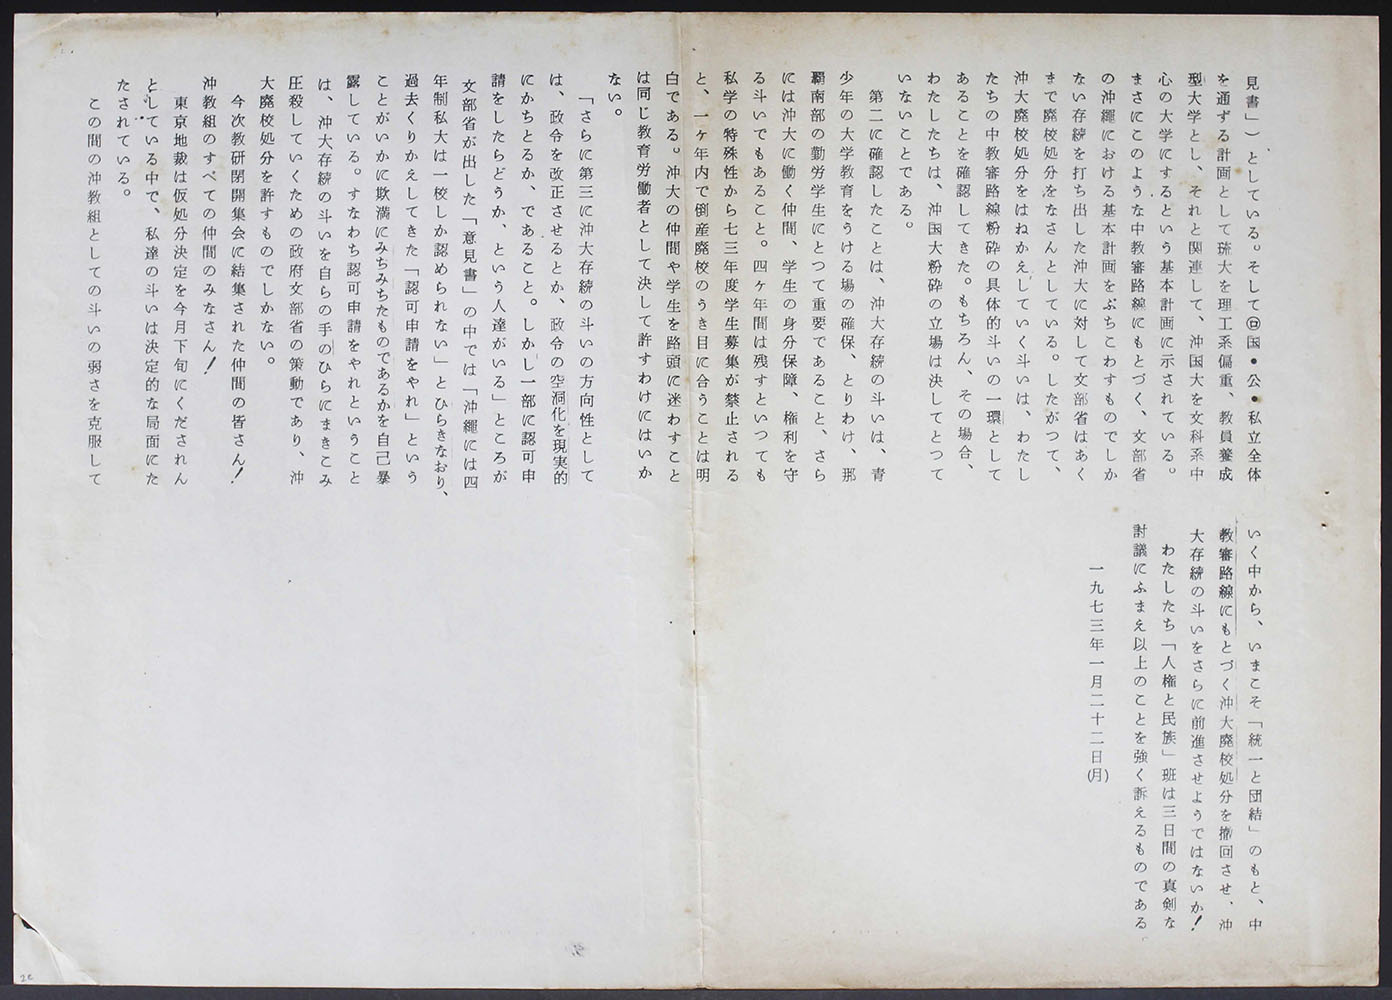 見書」）としている。そして㋺国・公・私立全体
を通ずる計画として琉大を理工系偏重、教員養成
型大学とし、それと関連して、沖国大を文科系中
心の大学にするという基本計画に示されている。
まさにこのような中教審路線にもとづく、文部省
の沖繩における基本計画をぶちこわすものでしか
ない存続を打ち出した沖大に対して文部省はあく
まで廃校処分をなさんとしている。したがつて、
沖大廃校処分をはねかえしていく斗いは、わたし
たちの中教審路線粉砕の具体的斗いの一環として
あることを確認してきた。もちろん、その場合、
わたしたちは、沖国大粉砕の立場は決してとつて
いないことである。
第二に確認したことは、沖大存続の斗いは、青
少年の大学教育をうける場の確保、とりわけ、那
覇南部の勤労学生にとつて重要であること、さら
には沖大に働く仲間、学生の身分保障、権利を守
る斗いでもあること。四ヶ年間は残すといつても
私学の特殊性から七三年度学生募集が禁止される
と、一ヶ年内で倒産廃校のうき目に合うことは明
白である。沖大の仲間や学生を路頭に迷わすこと
は同じ教育労働者として決して許すわけにはいか
ない。
「さらに第三に沖大存続の斗いの方向性として
は、政令を改正させるとか、政令の空洞化を現実的
にかちとるか、であること。しかし一部に認可申
請をしたらどうか、という人達がいる」ところが
文部省が出した「意見書」の中では「沖繩には四
年制私大は一校しか認められない」とひらきなおり、
過去くりかえしてきた「認可申請をやれ」という
ことがいかに欺満にみちみちたものであるかを自己暴
露している。すなわち認可申請をやれということ
は、沖大存続の斗いを自らの手のひらにまきこみ
圧殺していくための政府文部省の策動であり、沖
大廃校処分を許すものでしかない。
今次教研閉開集会に結集された仲間の皆さん！
沖教組のすべての仲間のみなさん！
東京地裁は仮処分決定を今月下旬にくだされん
としている中で、私達の斗いは決定的な局面にた
たされている。
この間の沖教組としての斗いの弱さを克服して
いく中から、いまこそ「統一と団結」のもと、中
教審路線にもとづく沖大廃校処分を撤回させ、沖
大存続の斗いをさらに前進させようではないか！
わたしたち「人権と民族」班は三日間の真剣な
討議にふまえ以上のことを強く訴えるものである
一九七三年一月二十二日(月)